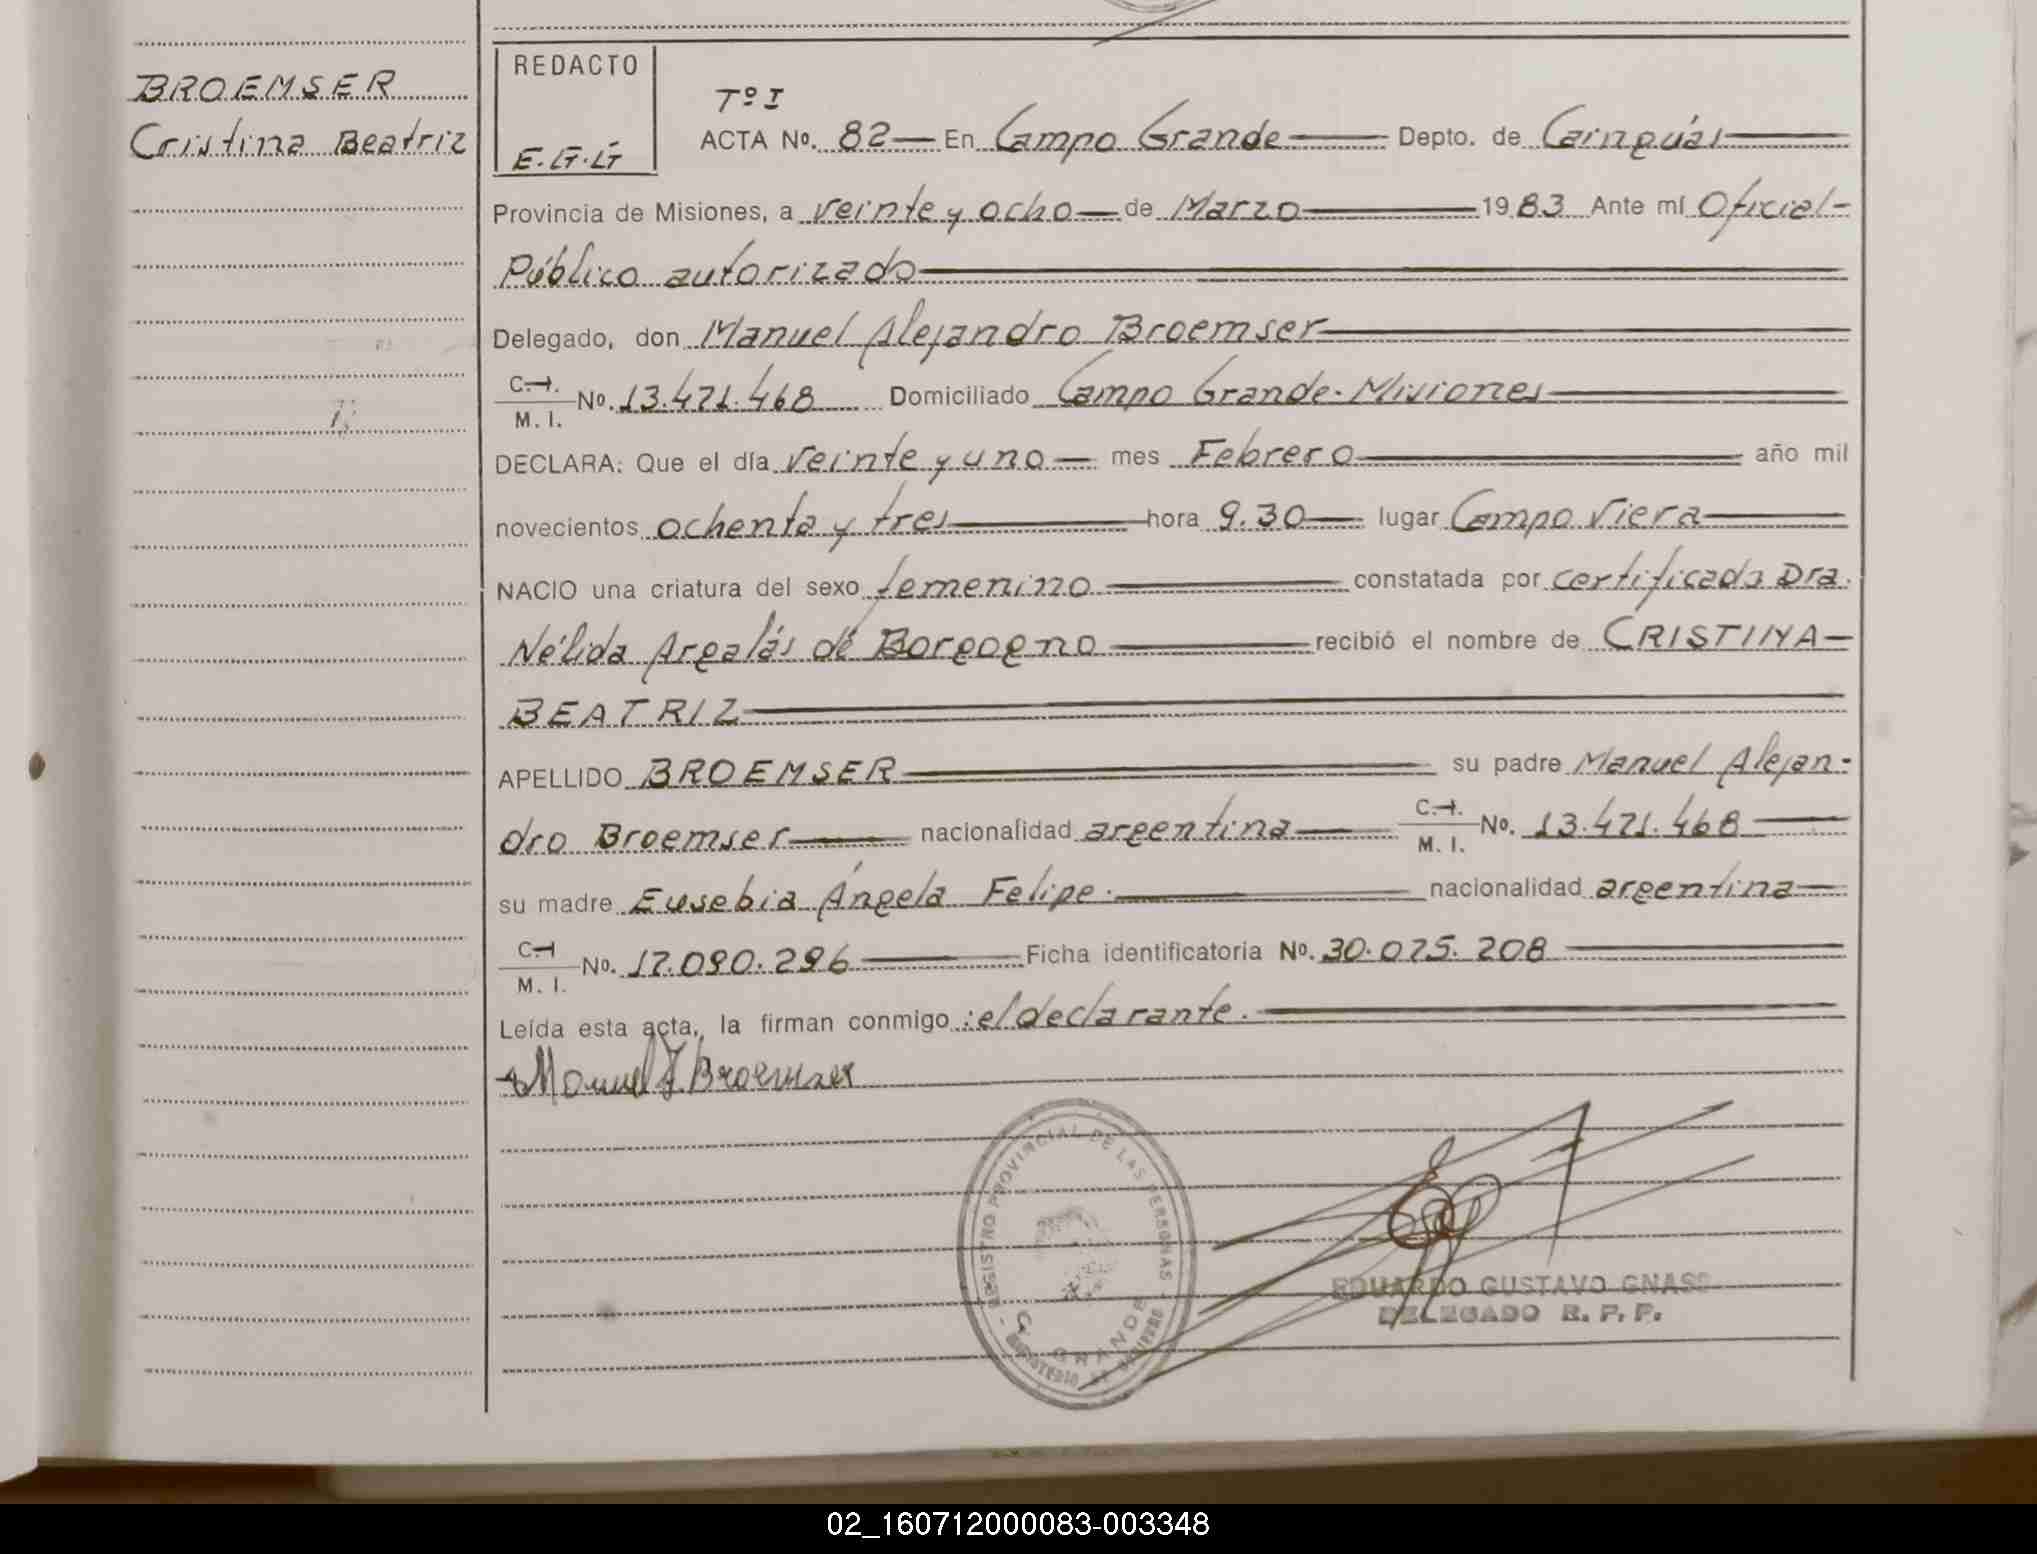 BROEMSER
Cristina Beatriz
REDACTO
E.G.G
Tº I
ACTA Nº. 82 En Campo Grande Depto. de Cainguás
Provincia de Misiones, a veinte y ocho de Marzo 1983 Ante mí Oficial-
Público autorizado
Delegado, don Manuel Alejandro Broemser
C.I. M. I. Nº. 13.471.468 Domiciliado Campo Grande-Misiones
DECLARA: Que el día veinte y uno mes Febrero año mil
novecientos ochenta y tres hora 9.30 lugar Campo Viera
NACIO una criatura del sexo femenino constatada por certificado Dra.
Nélida Argalás de Borgogno recibió el nombre de CRISTINA
BEATRIZ
APELLIDO BROEMSER su padre Manuel Alejan-
dro Broemser nacionalidad argentina C.I. M. I. Nº. 13.471.468
su madre Eusebia Ángela Felipe. nacionalidad argentina
C.I M. I. Nº. 17.090.296 Ficha identificatoria Nº. 30.075.208
Leída esta acta, la firman conmigo :el declarante.
Manuel A. Broemser
REGISTRO PROVINCIAL DE LAS PERSONAS - MINISTERIO DE GOBIERNO -
C. GRANDE
EDUARDO GUSTAVO GNASS
DELEGADO R. P. P.
02_160712000083-003348